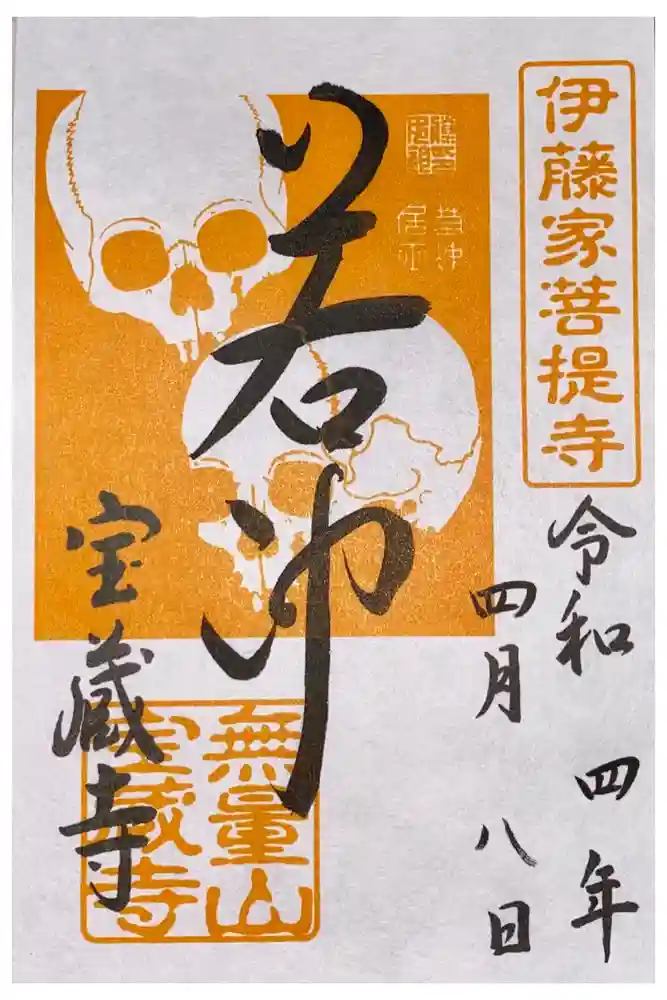 伊藤家菩提寺
令和 四年
四月 八日
若冲
宝蔵寺
無量山
宝蔵寺